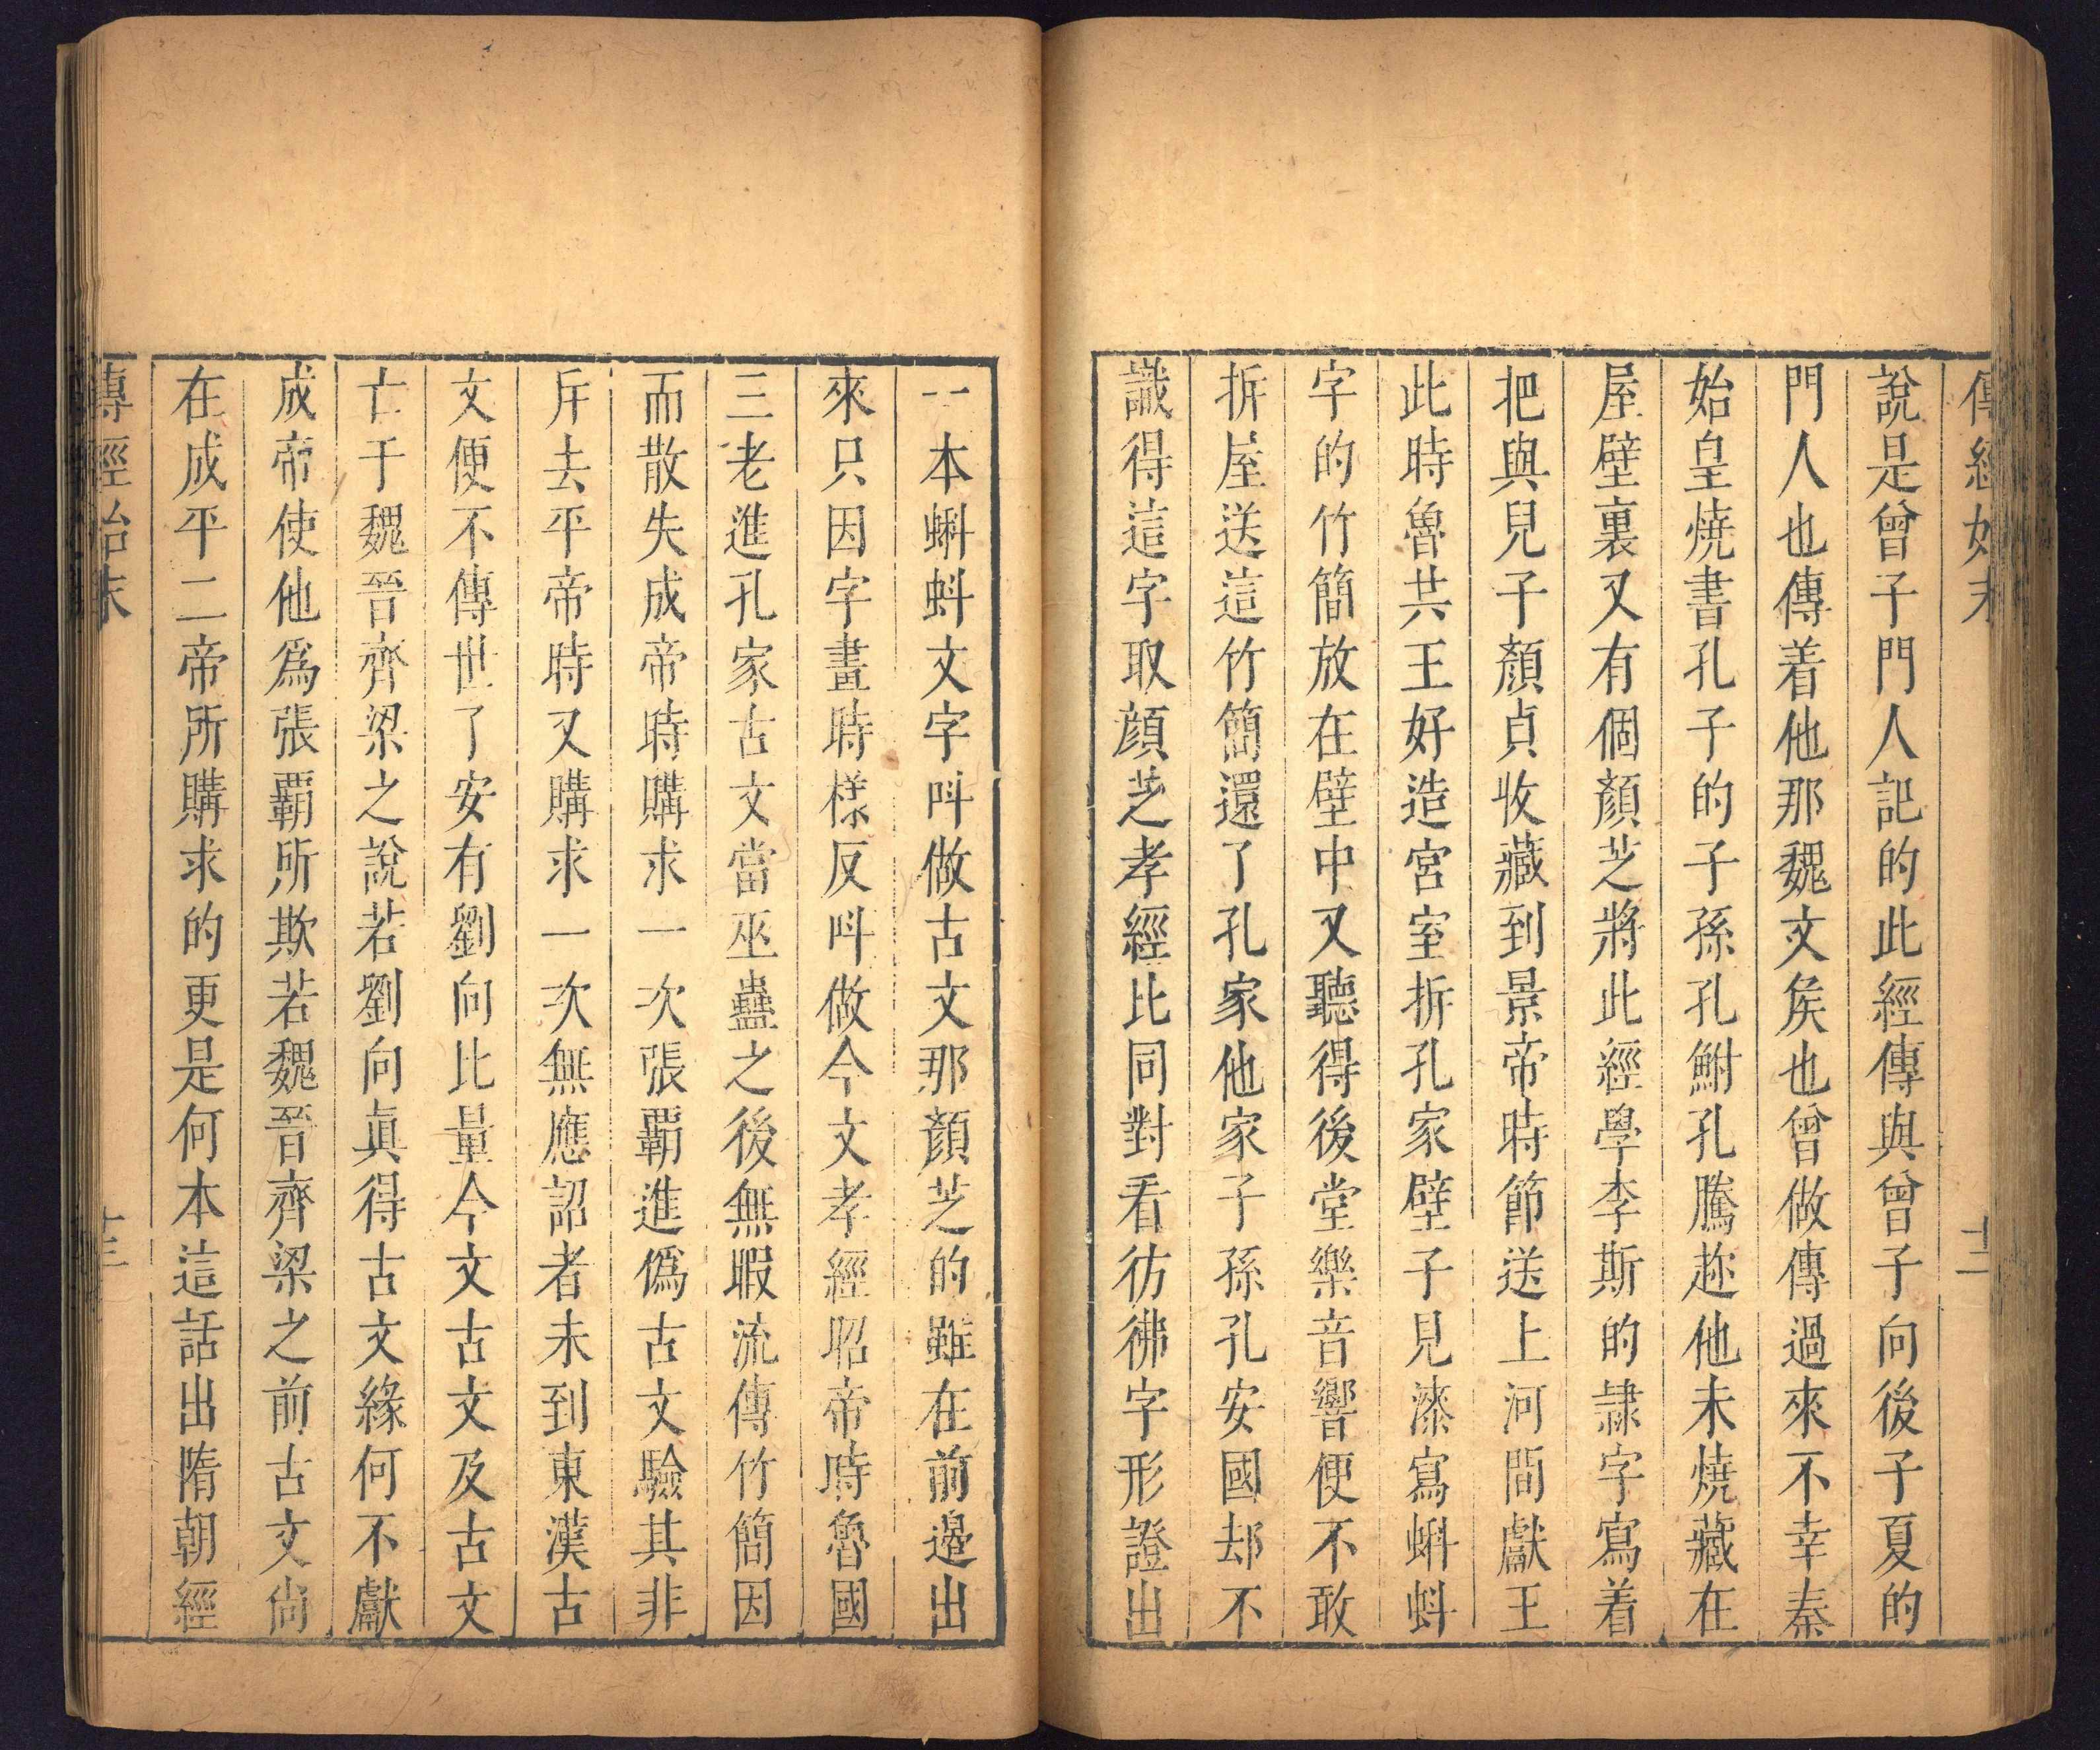 傳經始末 十二
說是曾子門人記的此經傳與曾子向後子夏的
門人也傳着他那魏文矦也曾做傳過來不幸秦
始皇燒書孔子的子孫孔鮒孔騰趂他未燒藏在
屋壁裏又有個顏芝將此經學李斯的隷字寫着
把與兒子顏貞收藏到景帝時節送上河間獻王
此時魯共王好造宮室折孔家壁子見漆寫蝌蚪
字的竹簡放在壁中又聽得後堂樂音響便不敢
拆屋送這竹簡還了孔家他家子孫孔安國却不
識得這字取顏芝孝經比同對看彷彿字形證出
一本蝌蚪文字呌做古文那顏芝的雖在前邊出
來只因字畫時樣反呌做今文孝經昭帝時魯國
三老進孔家古文當巫蠱之後無暇流傳竹簡因
而散失成帝時購求一次張霸進僞古文驗其非
斥去平帝時又購求一次無應詔者未到東漢古
文便不傳世了安有劉向比量今文古文及古文
亡于魏晉齊梁之說若劉向眞得古文緣何不獻
成帝使他爲張覇所欺若魏晉齊梁之前古文尙
在成平二帝所購求的更是何本這話出隋朝經
傳經始末 十三